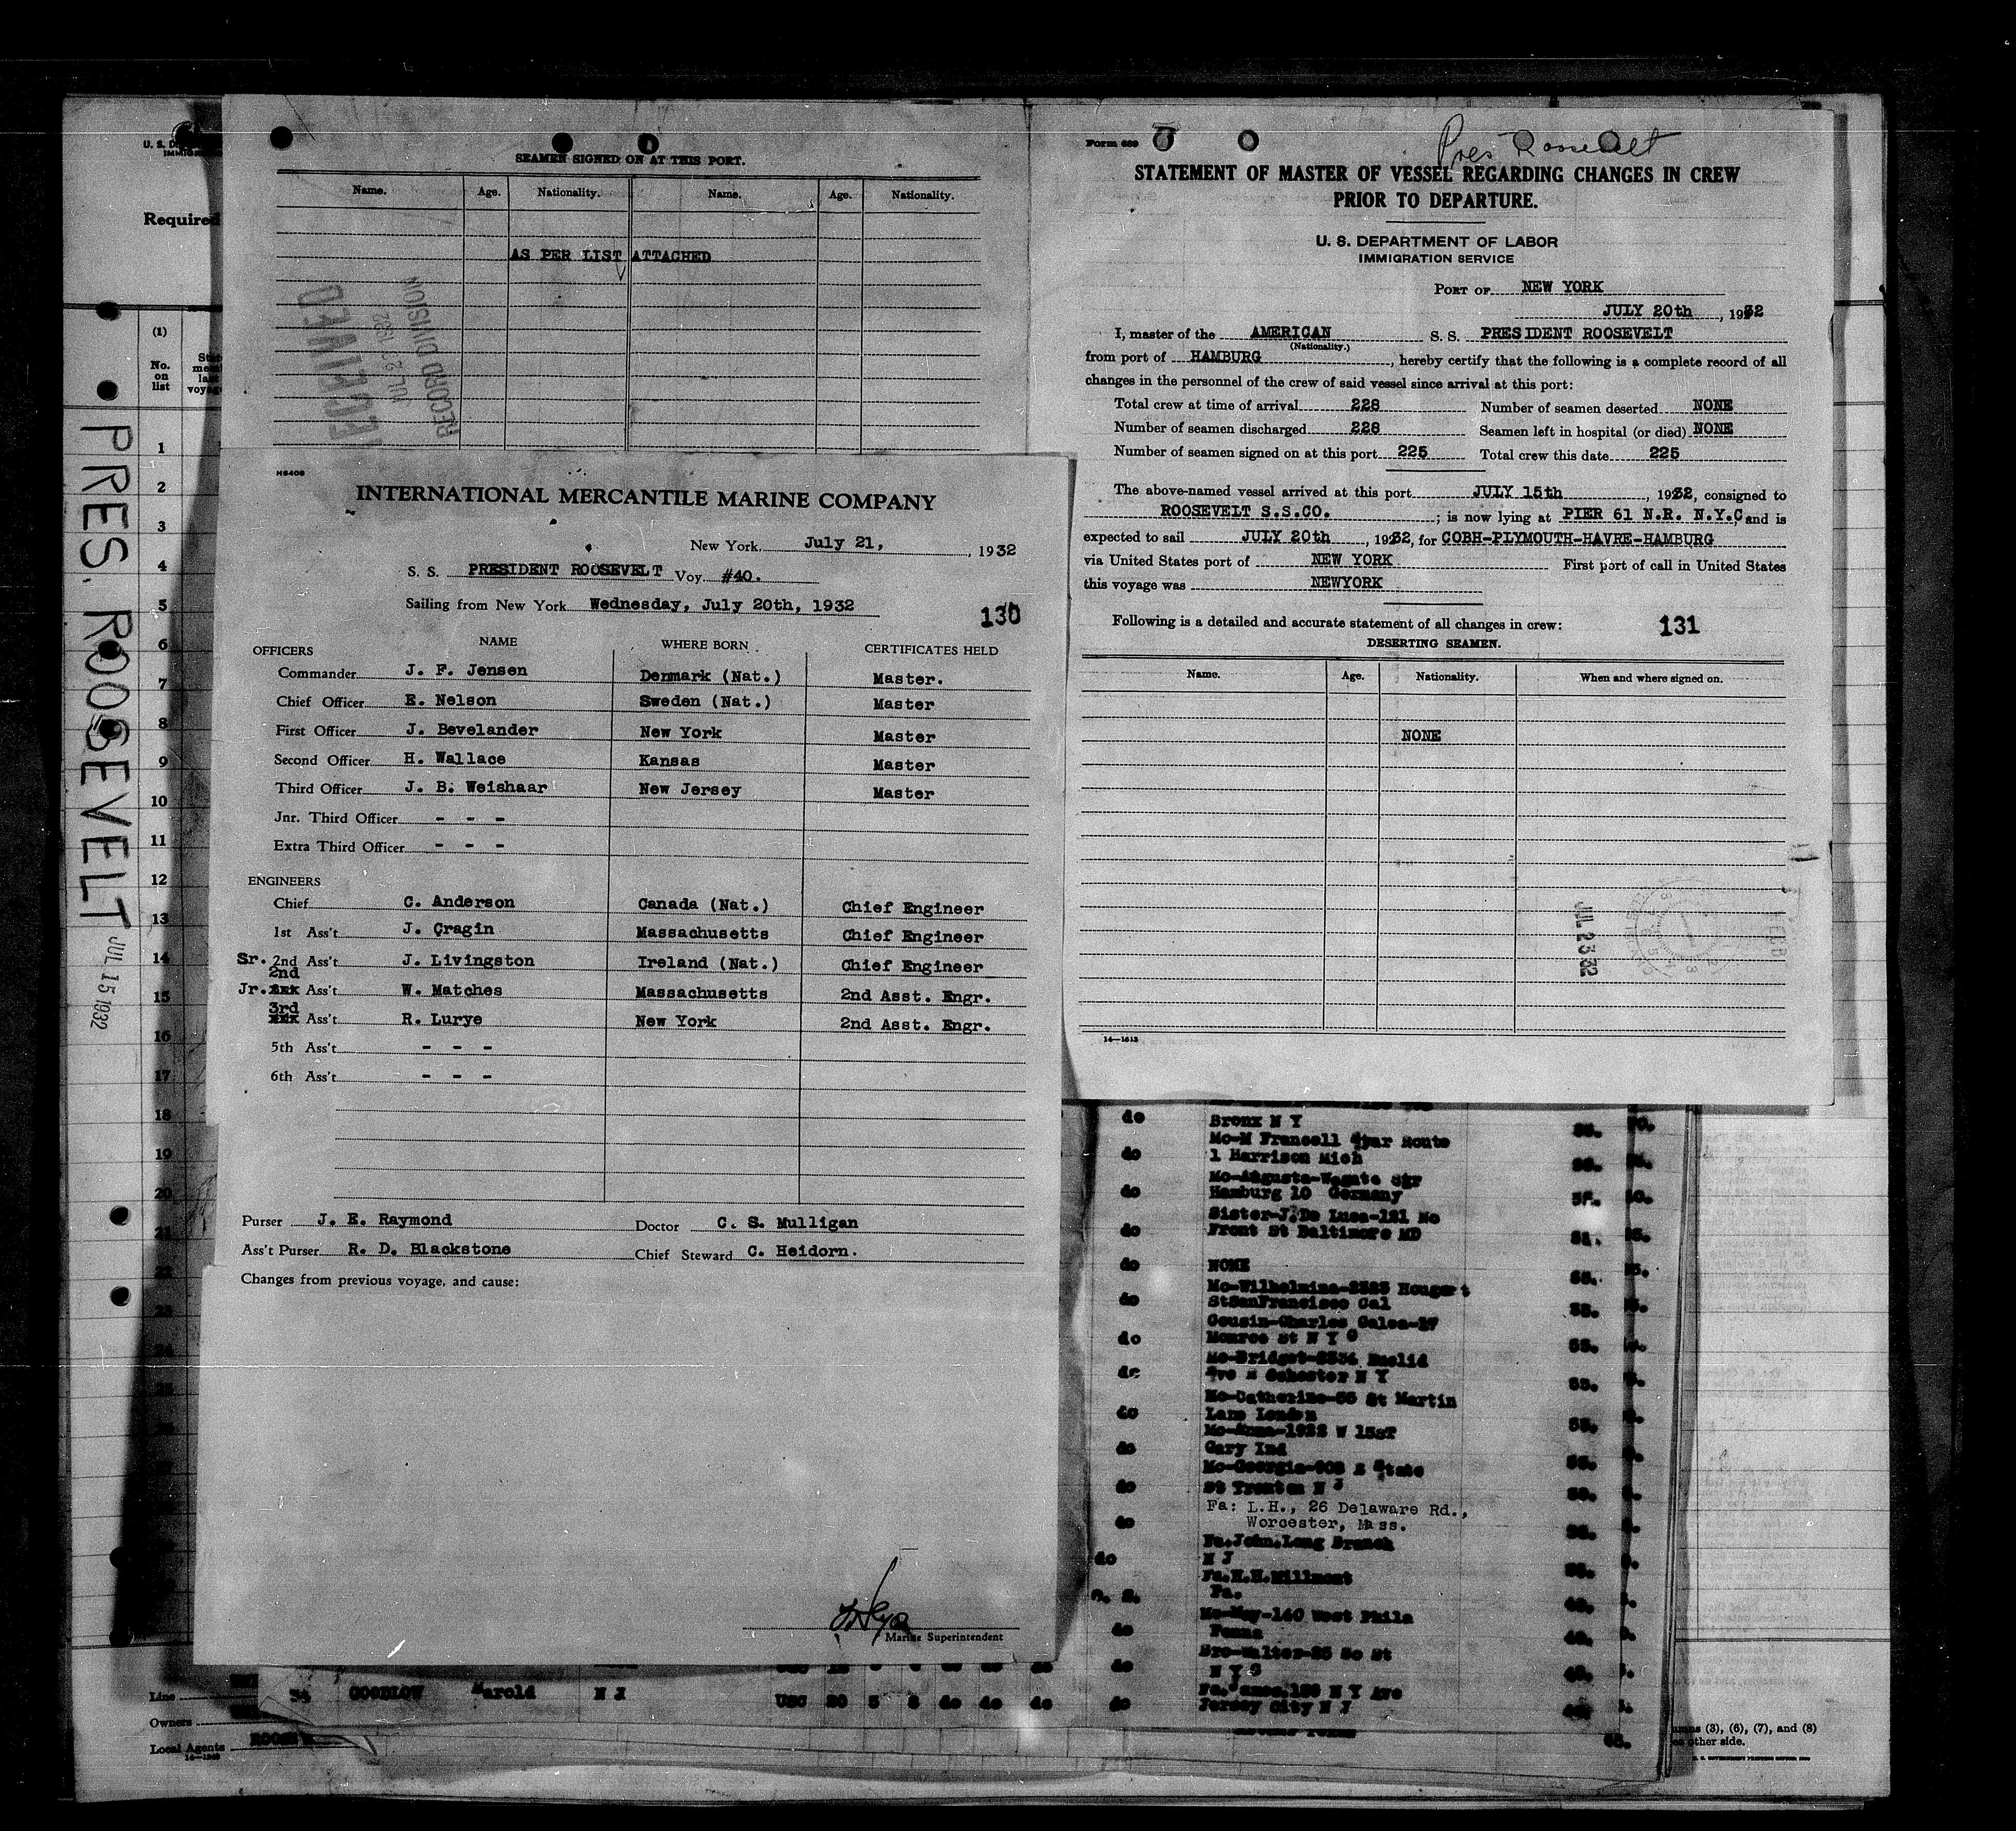 U. S. D
IMMIG
Required
(1)
No.
on
list
1
2
3
4
5
6
7
8
9
10
11
12
13
14
15
16
17
18
19
20
21
22
23
PRES. ROOSEVELT
JUL 15 1932
SEAMEN SIGNED ON AT THIS PORT.
Name. Age. Nationality. Name. Age. Nationality.
AS PER LIST ATTACHED
RECEIVED
JUL 23 1932
RECORD DIVISION
INTERNATIONAL MERCANTILE MARINE COMPANY
New York, July 21, , 1932
S. S. PRESIDENT ROOSEVELT Voy. #40.
Sailing from New York Wednesday, July 20th, 1932
130
OFFICERS NAME WHERE BORN CERTIFICATES HELD
Commander J. F. Jensen Denmark (Nat.) Master.
Chief Officer E. Nelson Sweden (Nat.) Master
First Officer J. Bevelander New York Master
Second Officer H. Wallace Kansas Master
Third Officer J. B. Weishaar New Jersey Master
Jnr. Third Officer - - -
Extra Third Officer - - -
ENGINEERS
Chief C. Anderson Canada (Nat.) Chief Engineer
1st Ass't J. Cragin Massachusetts Chief Engineer
Sr. 2nd Ass't J. Livingston Ireland (Nat.) Chief Engineer
2nd
Jr. Ass't W. Matches Massachusetts 2nd Asst. Engr.
3rd
Ass't R. Lurye New York 2nd Asst. Engr.
5th Ass't - - -
6th Ass't - - -
Purser J. E. Raymond Doctor C. S. Mulligan
Ass't Purser R. D. Blackstone Chief Steward C. Heidorn.
Changes from previous voyage, and cause:
Marine Superintendent
Form 689
Pres Roosevelt
STATEMENT OF MASTER OF VESSEL REGARDING CHANGES IN CREW
PRIOR TO DEPARTURE.
U. S. DEPARTMENT OF LABOR
IMMIGRATION SERVICE
PORT OF NEW YORK
JULY 20th , 1932
I, master of the AMERICAN S. S. PRESIDENT ROOSEVELT
(Nationality.)
from port of HAMBURG , hereby certify that the following is a complete record of all
changes in the personnel of the crew of said vessel since arrival at this port:
Total crew at time of arrival 228 Number of seamen deserted NONE
Number of seamen discharged 228 Seamen left in hospital (or died) NONE
Number of seamen signed on at this port 225 Total crew this date 225
The above-named vessel arrived at this port JULY 15th , 1932, consigned to
ROOSEVELT S.S.CO. ; is now lying at PIER 61 N.R. N.Y.C and is
expected to sail JULY 20th , 1932, for COBH-PLYMOUTH-HAVRE-HAMBURG
via United States port of NEW YORK First port of call in United States
this voyage was NEWYORK
Following is a detailed and accurate statement of all changes in crew:
131
DESERTING SEAMEN.
Name. Age. Nationality. When and where signed on.
NONE
JUL 23 32
14—1613
do Bronx N Y
Mo-M Francell Star Route
do 1 Harrison Mich
Mo-Augusta-Wagate Str
do Hamburg 10 Germany
Sister-J.De Luca-121 No
do Front St Baltimore MD
do NONE
Mo-Wilhelmina-2323 Hougart
do StSanFrancisco Cal
Cousin-Charles Galea-17
do Monroe St N Y C
Mo-Bridget-2534 Euclid
Mo-Catherine-55 St Martin
do Lane London
Mo-Anna-1922 W 15ST
do Gary Ind
Mo-Georgia-908 E State
do St Trenton N J
Fa: L.H., 26 Delaware Rd.,
do Worcester, Mass.
Fa.John.Long Branch
do N J
Fa.H.H.Millmont
Pa.
Mo-May-140 West Phila
do Penna
Bro-Walter-25 So St
do N Y C
Fa.James.156 N Y Ave
34 GOODLOW Harold N J USC 20 5 8 do do do do Jersey City N J
Line
Owners
Local Agents
14—1240
umns (3), (6), (7), and (8)
other side.